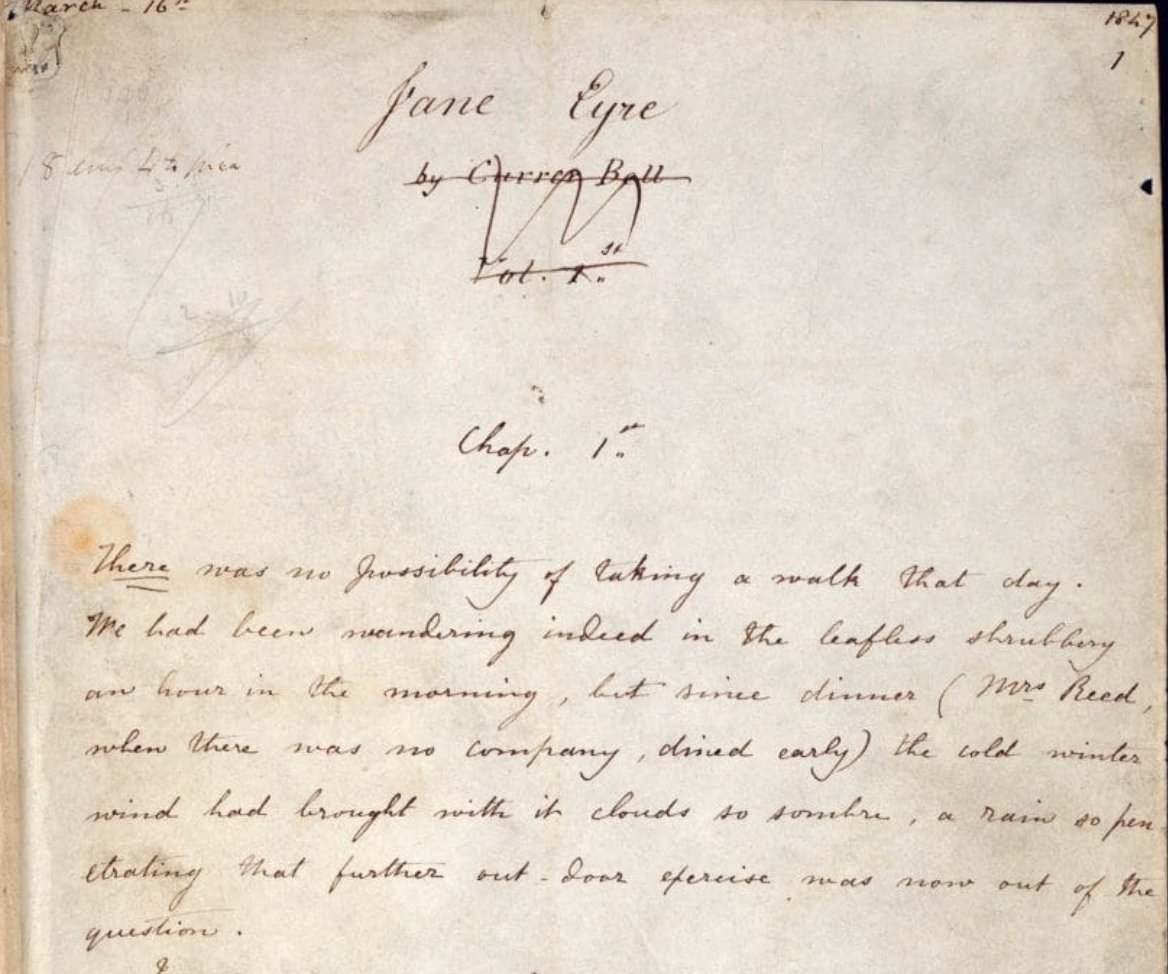 March - 16th
1847
1
Jane Eyre
by Currer Bell
Vol. 1.st
Chap. 1.st
There was no possibility of taking a walk that day.
We had been wandering indeed in the leafless shrubbery
an hour in the morning, but since dinner (Mrs Reed,
when there was no company, dined early) the cold winter
wind had brought with it clouds so sombre, a rain so pen
etrating that further out-door exercise was now out of the
question.